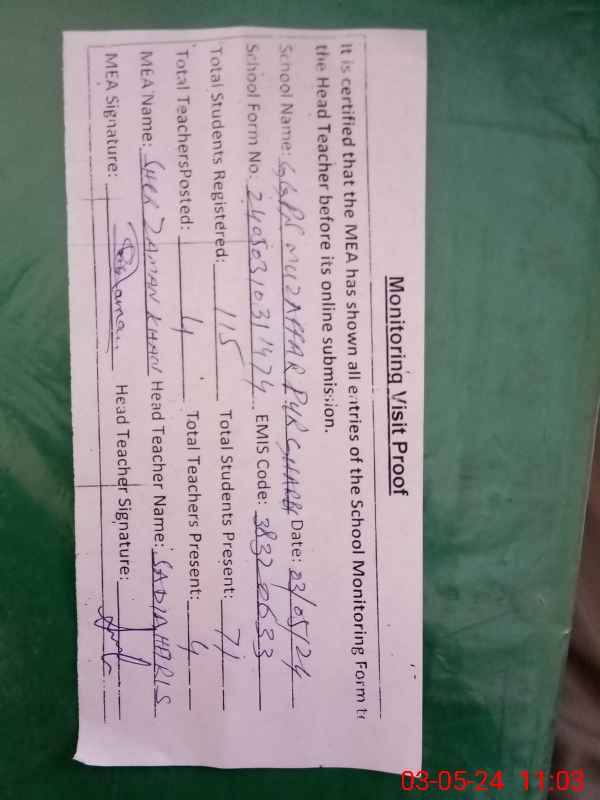 Monitoring Visit Proof
It is certified that the MEA has shown all entries of the School Monitoring Form to
the Head Teacher before its online submission.
School Name: GGPS MUZAFFAR PUR GHARBI Date: 03/05/24
School Form No: 2405031031474 EMIS Code: 38320633
Total Students Registered: 115 Total Students Present: 71
Total TeachersPosted: 4 Total Teachers Present: 4
MEA Name: SHER ZAMAN KHAN Head Teacher Name: SADIA
MEA Signature: Head Teacher Signature:
03-05-24 11:03